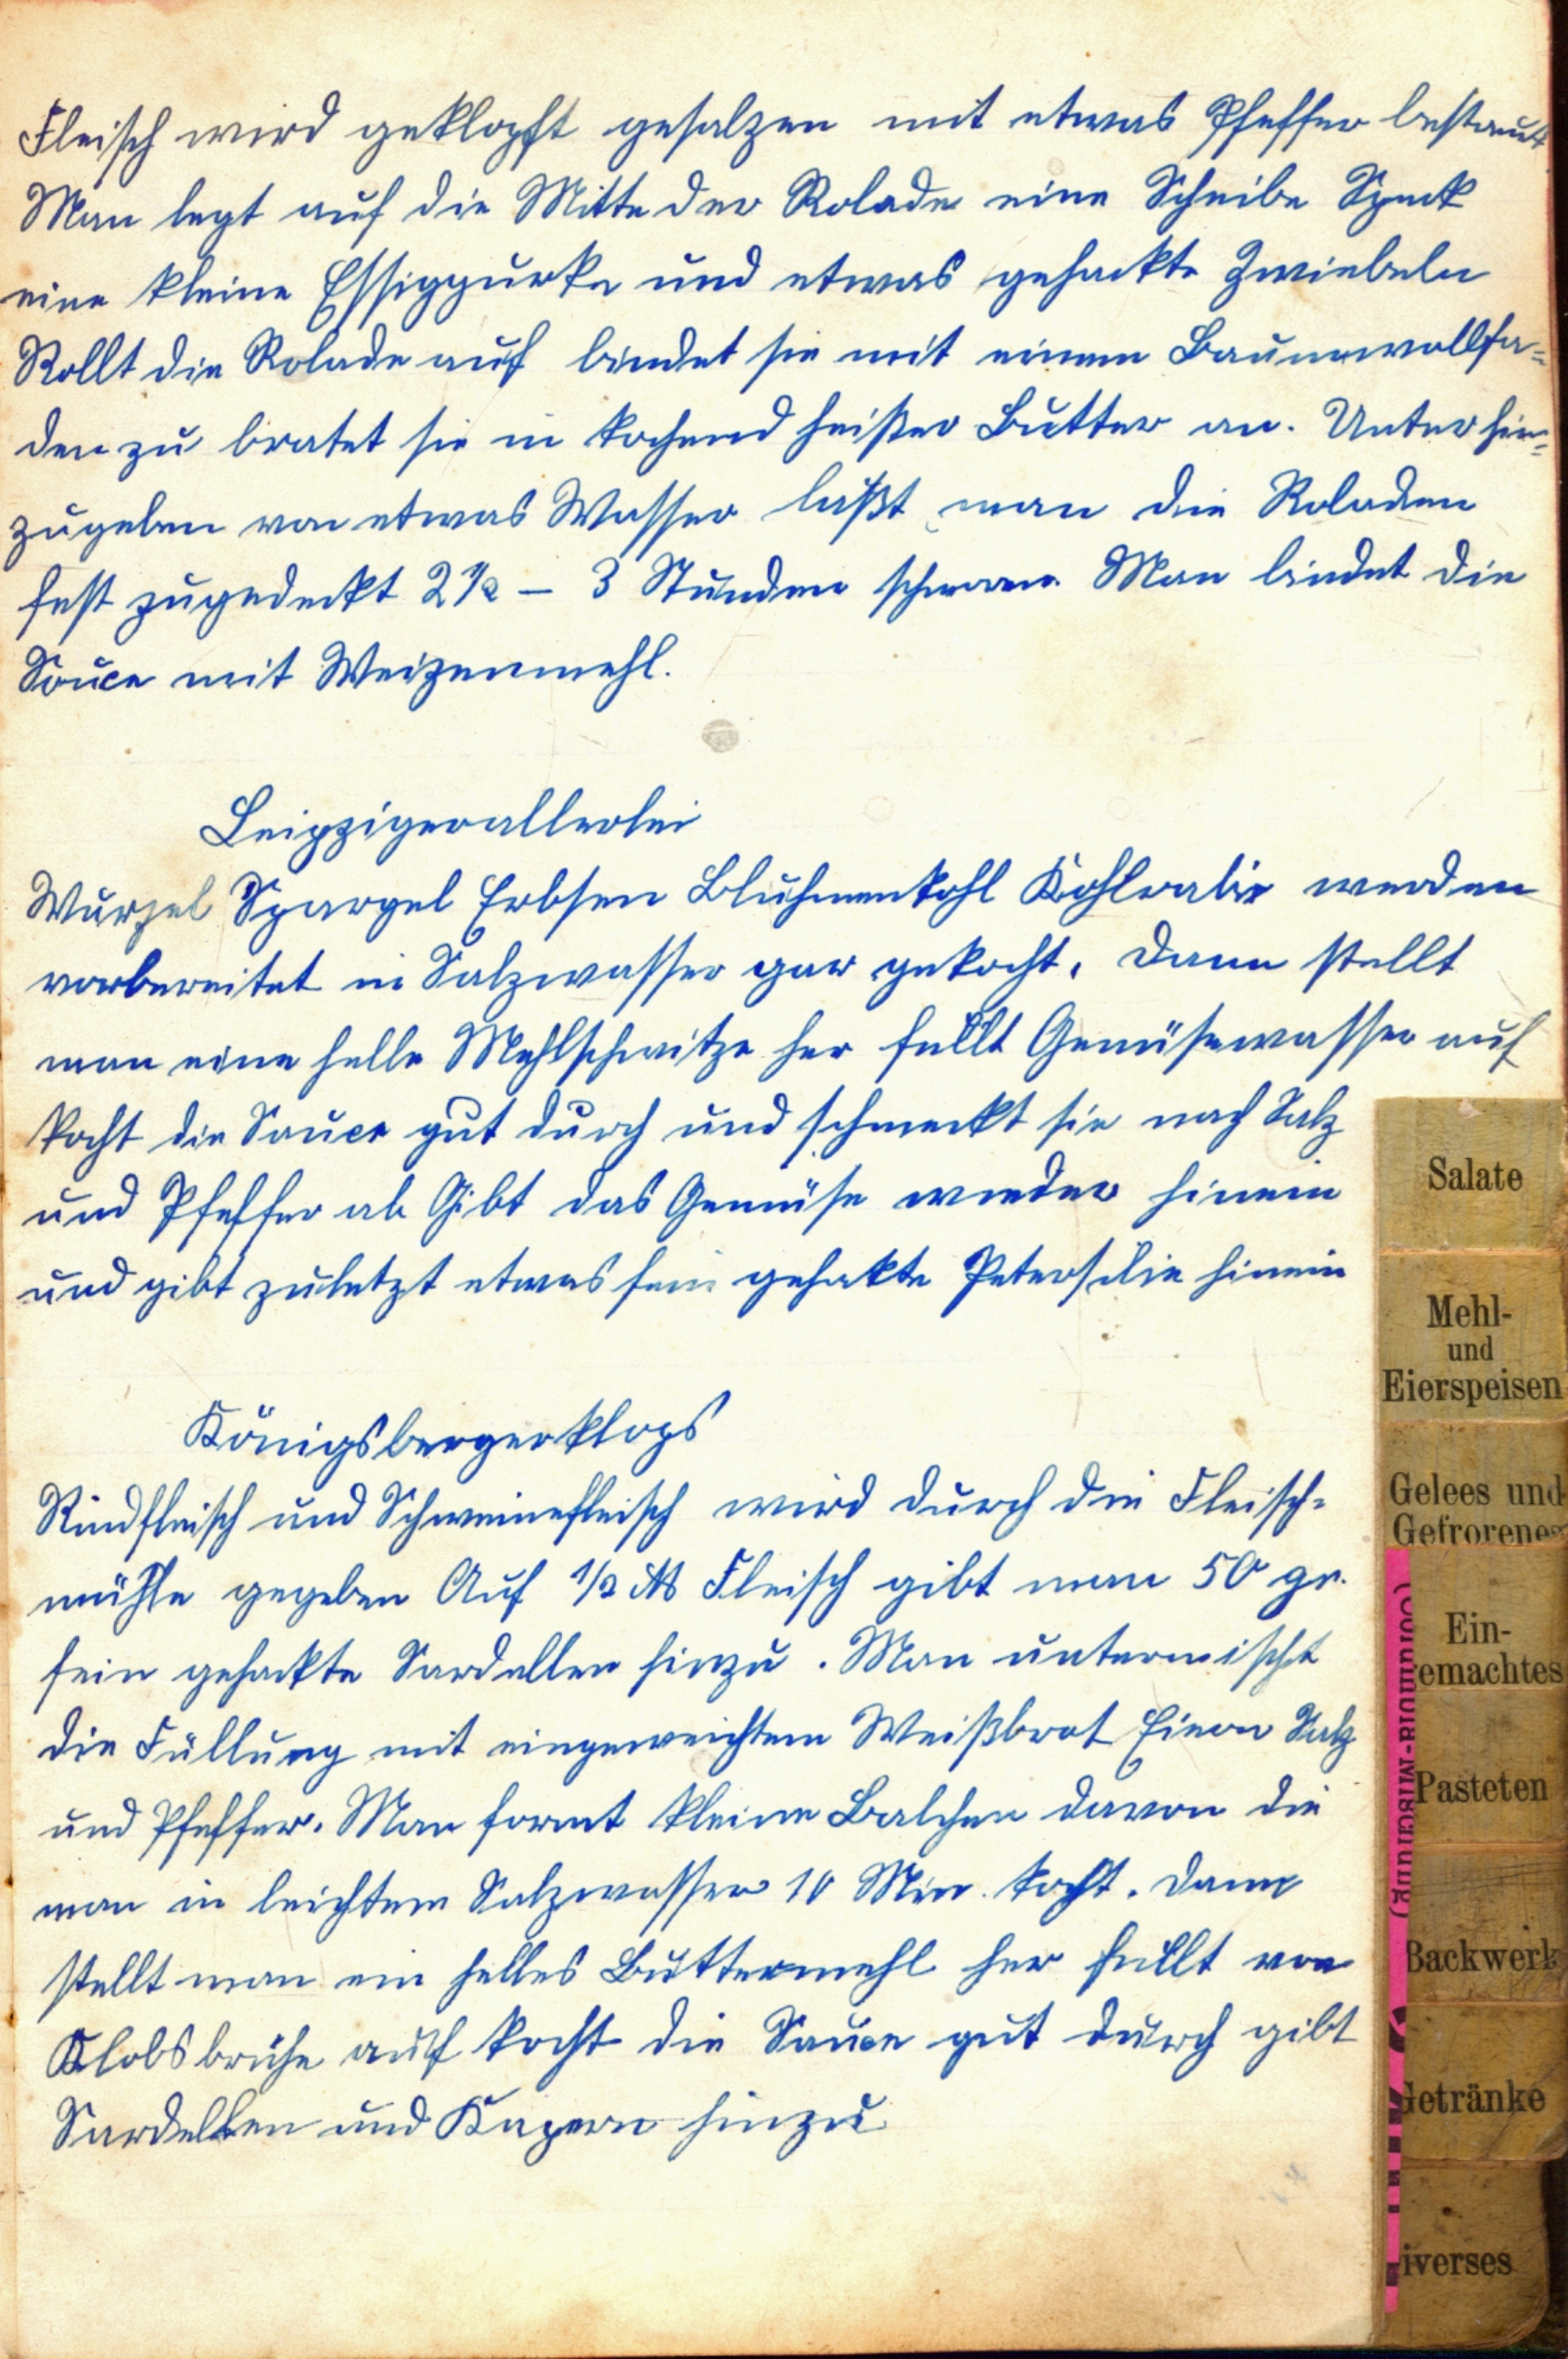 Fleisch wird geklopft gesalzen mit etwas Pfeffer bestaut
Man legt auf die Mitte der Rolade eine Scheibe Speck
eine kleine Essiggurke und etwas gehackte Zwiebeln
Rollt die Rolade auf bindet sie mit einem Baumwollfa=
den zu bratet sie in kochend heißer Butter an. Unter hin=
zugeben von etwas Wasser läßt man die Roladen
fest zugedeckt 2 1/2 – 3 Stunden schmoren. Man bindet die
Souce mit Weizenmehl.
Leipzigerallerlei
Wurzel Spargel Erbsen Bluhmenkohl Kohlrabie werden
vorbereitet in Salzwasser gar gekocht. Dann stellt
man eine helle Mehlschwitze her füllt Gemüsewasser auf
kocht die Sauce gut durch und schmeckt sie nach Salz
und Pfeffer ab Gibt das Gemüse wieder hinein
und gibt zuletzt etwas fein gehakte Petersilie hinein
Königsbergerklops
Rindfleisch und Schweinefleisch wird durch die Fleisch=
mühle gegeben Auf 1/2 Fleisch gibt man 50 gr.
fein gehackte Sardellen hinzu. Man untermischt
die Füllung mit eingeweichtem Weißbrot Eiern Salz
und Pfeffer. Man formt kleine Balchen davon die
man in leichtem Salzwasser 10 Min. kocht. Dann
stellt man ein helles Buttermehl her füllt von
Klobsbrühe auf kocht die Sauce gut durch gibt
Sardellen und Kapern hinzu
Salate
Mehl-
und
Eierspeisen
Gelees und
Gefrorenes
Ein-
emachtes
Pasteten
Backwerk
Getränke
iverses